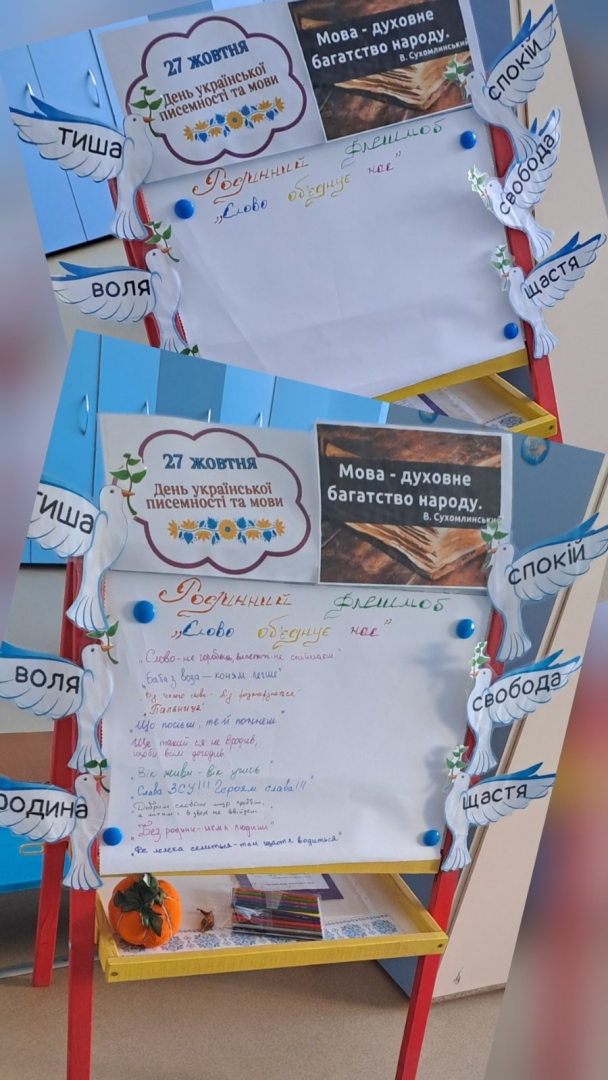 27 ЖОВТНЯ
День української
писемності та мови
Мова - духовне
багатство народу.
В. Сухомлинський
ТИША
ВОЛЯ
СПОКІЙ
СВОБОДА
ЩАСТЯ
Родинний Флешмоб
„Слово об'єднує нас”
27 ЖОВТНЯ
День української
писемності та мови
Мова - духовне
багатство народу.
В. Сухомлинськи
ТИША
ВОЛЯ
РОДИНА
СПОКІЙ
СВОБОДА
ЩАСТЯ
Родинний Флешмоб
„Слово об'єднує нас”
„Слово - не горобець, вилетить - не спіймаєш."
„Баба з воза — коням легше"
"Паляниця"
„Що посієш, те й пожнеш"
Ще такий ся не вродив,
щоби всім догодив
„Вік живи - вік учись"
Слава ЗСУ!!! Героям слава!!!
„Без родини - нема людини"
„Де лелека селиться - там щастя водиться"